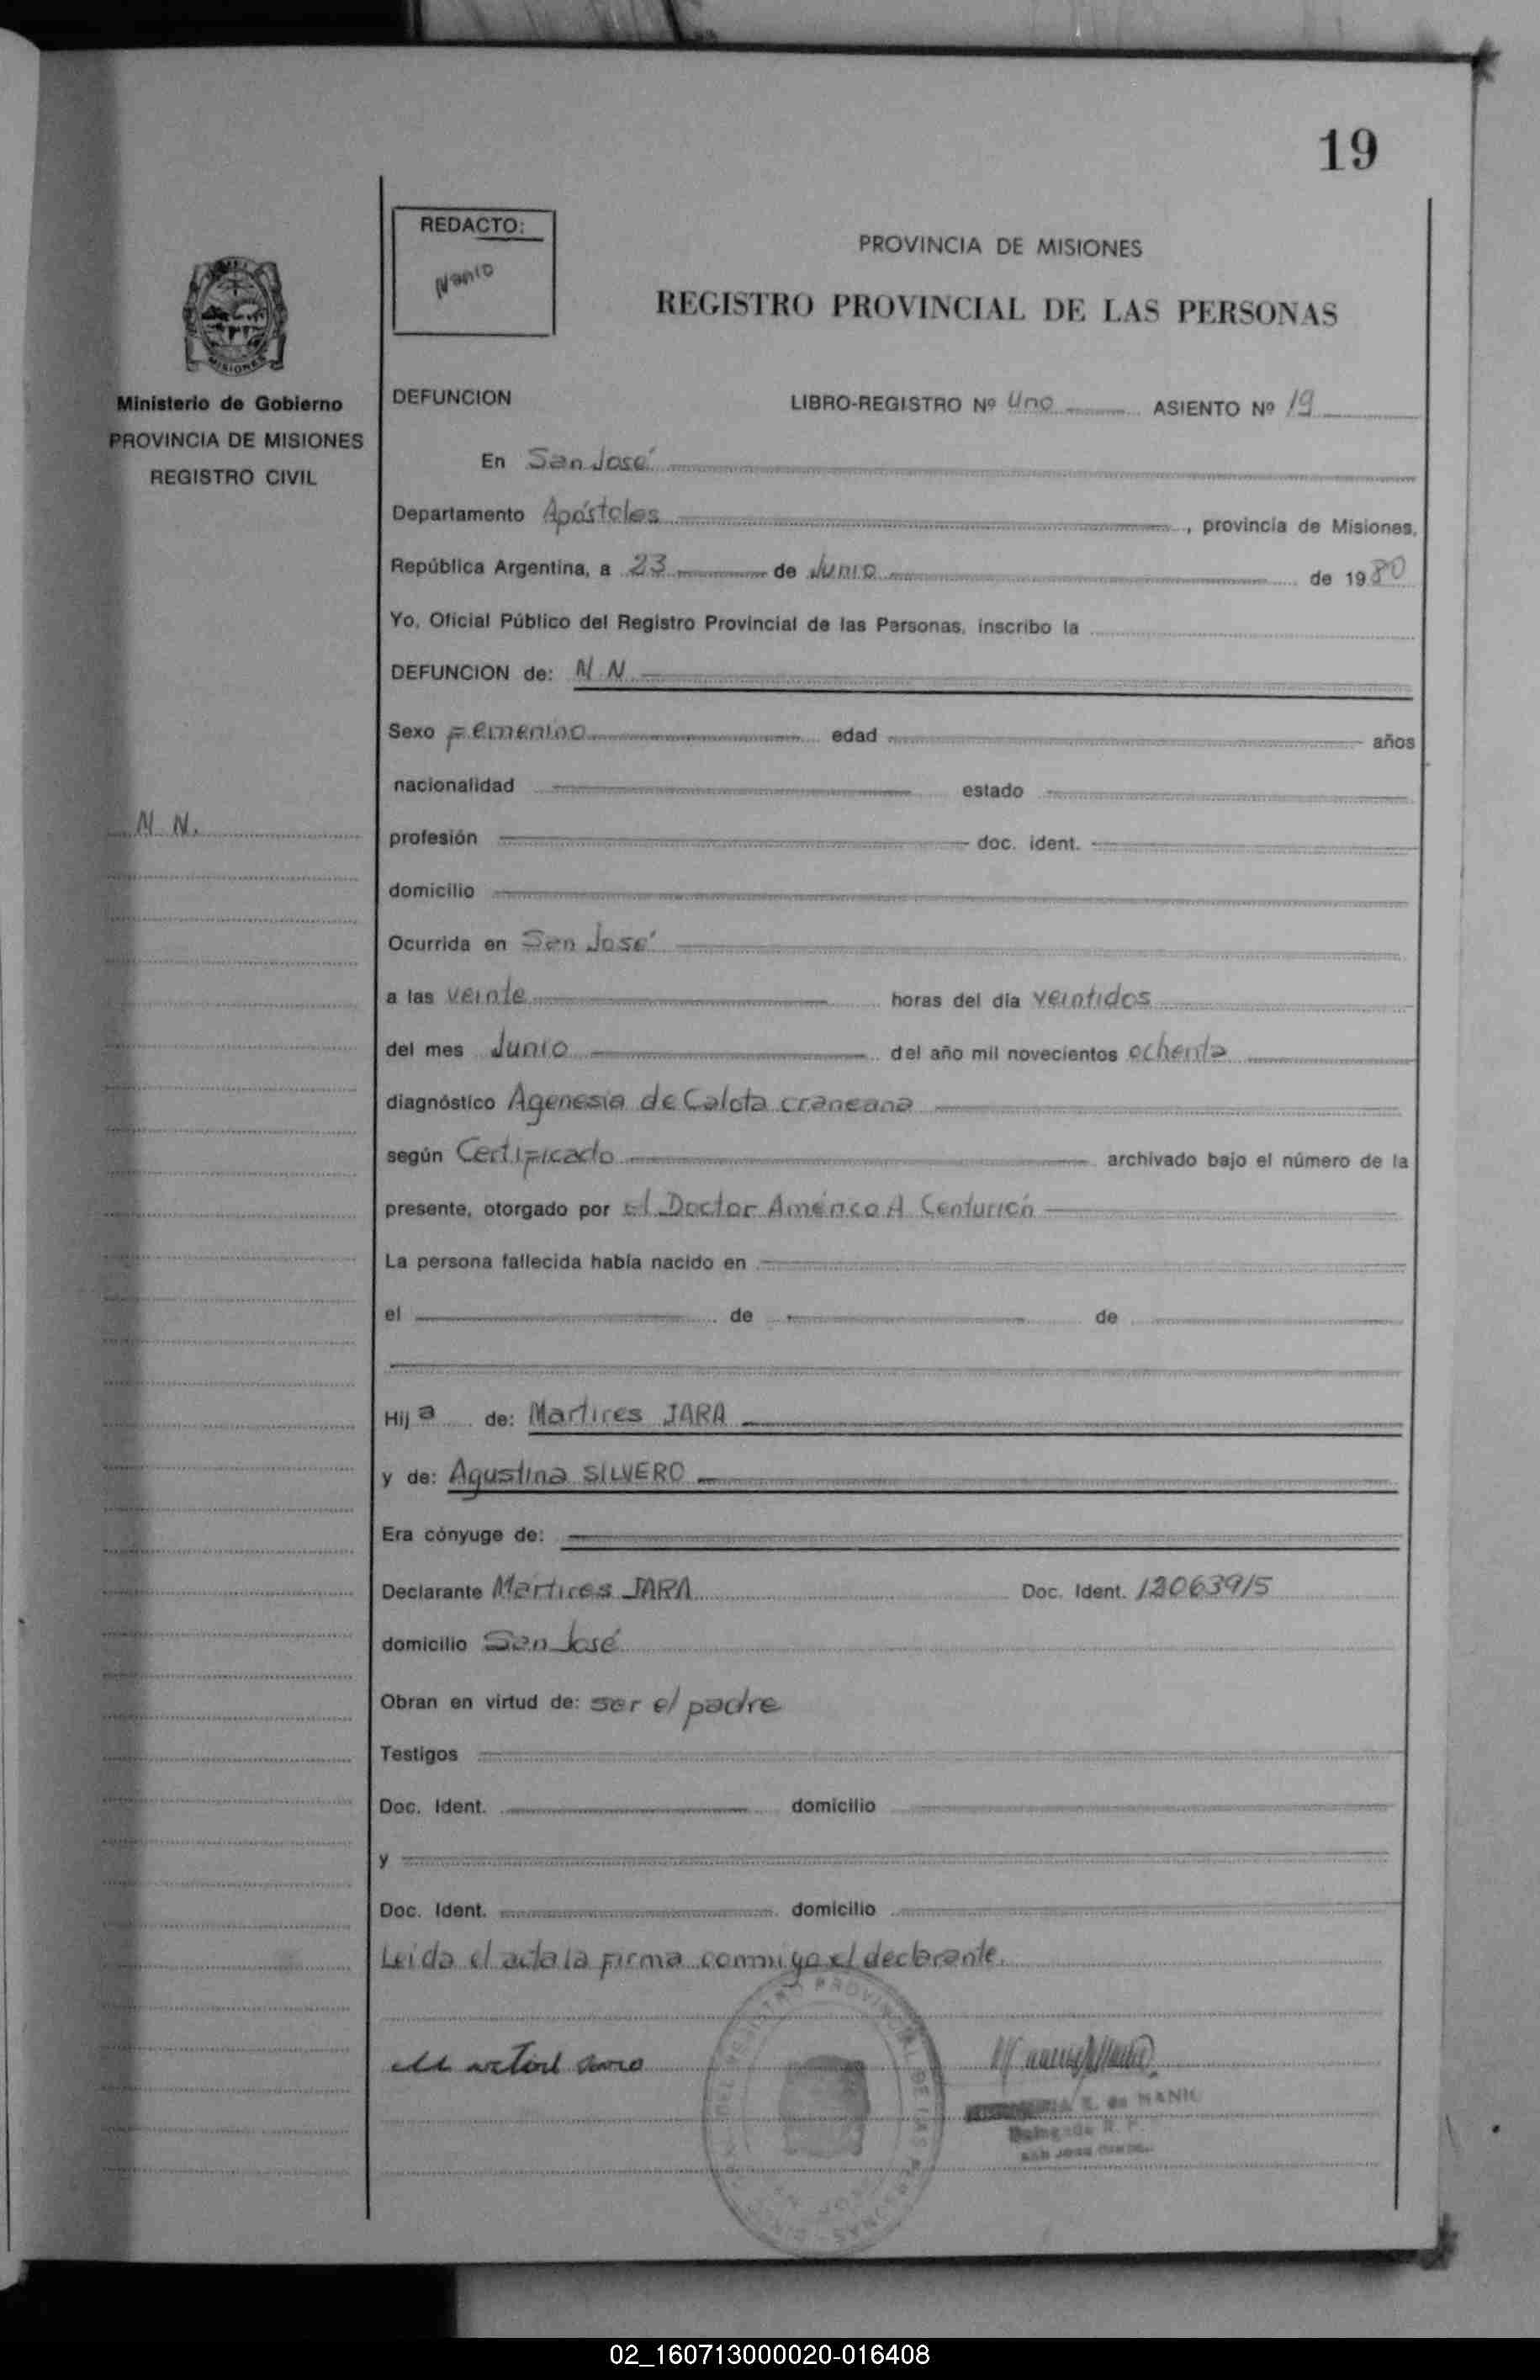 19
REDACTO:
Nanio
PROVINCIA DE MISIONES
REGISTRO PROVINCIAL DE LAS PERSONAS
MISIONES
Ministerio de Gobierno
PROVINCIA DE MISIONES
REGISTRO CIVIL
DEFUNCION LIBRO-REGISTRO Nº Uno ASIENTO Nº 19
En San José
Departamento Apóstoles, provincia de Misiones,
República Argentina, a 23 de Junio de 1980
Yo, Oficial Público del Registro Provincial de las Personas, inscribo la
DEFUNCION de: N N
Sexo Femenino edad años
nacionalidad estado
N N.
profesión doc. ident.
domicilio
Ocurrida en San José
a las veinte horas del día veintidos
del mes Junio del año mil novecientos ochenta
diagnóstico Agenesia de Calota craneana
según Certificado archivado bajo el número de la
presente, otorgado por el Doctor Américo A Centurión
La persona fallecida había nacido en
el de de
Hija de: Martires JARA
y de: Agustina SILVERO
Era cónyuge de:
Declarante Martires JARA Doc. Ident. 12063915
domicilio San José
Obran en virtud de: ser el padre
Testigos
Doc. Ident. domicilio
y
Doc. Ident. domicilio
Leida el acta la firma conmigo el declarante.
02_160713000020-016408